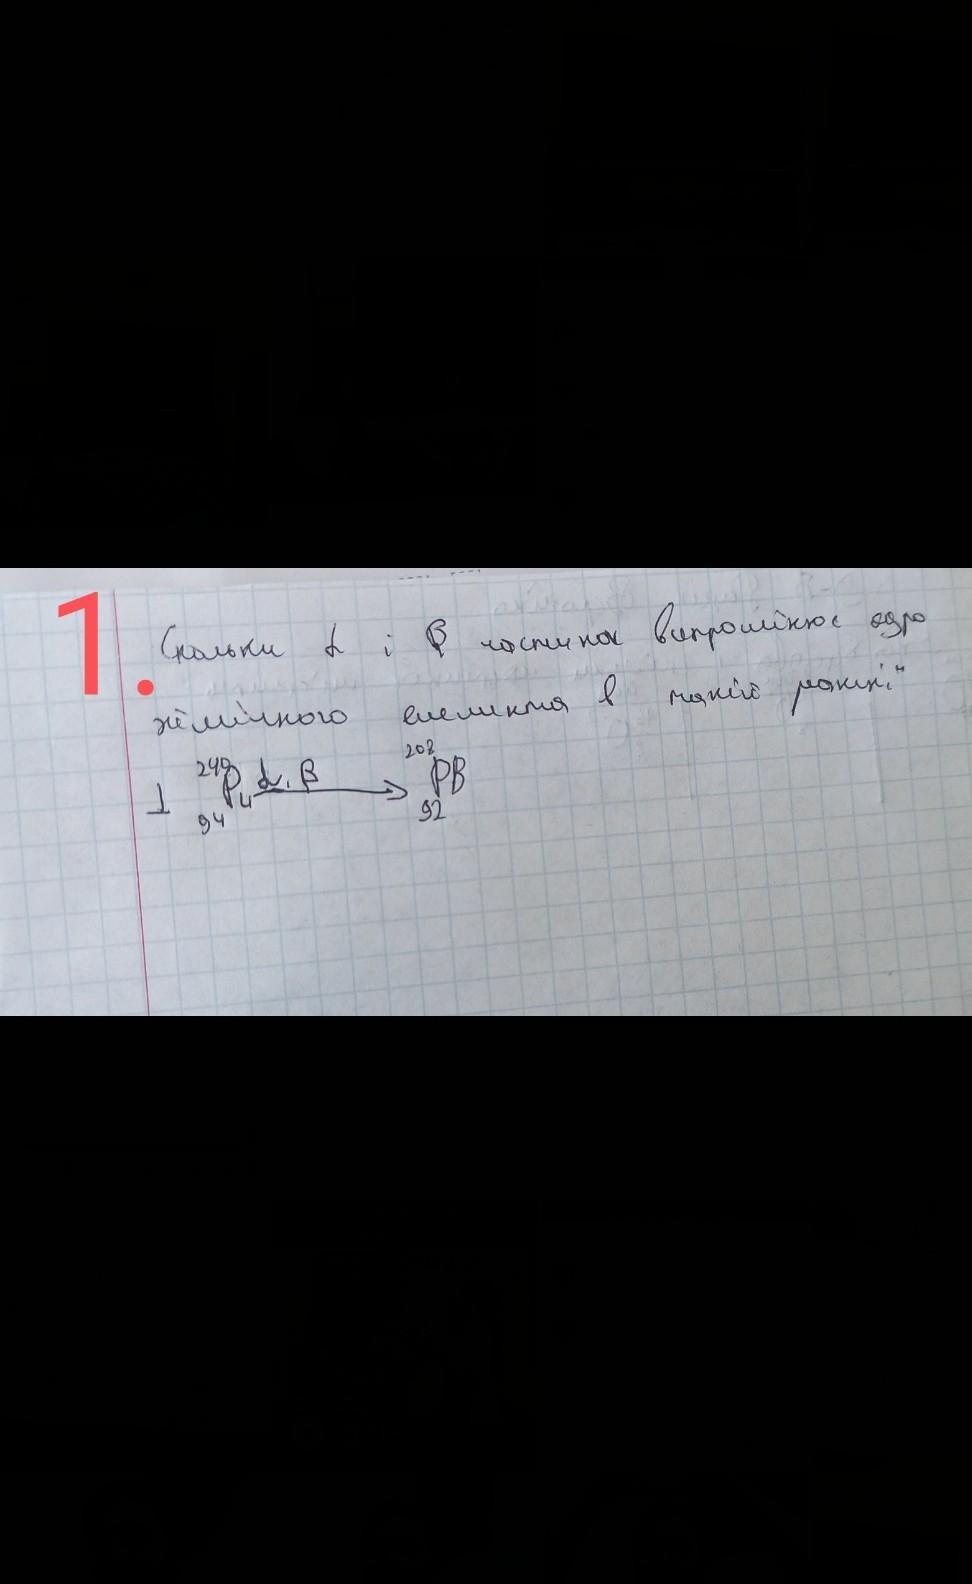 1.
Скольки α і β частинок випромінює ядро
хімічного елемента в такій раккі"
1 240 Pu α, β → 208 PB
94 92